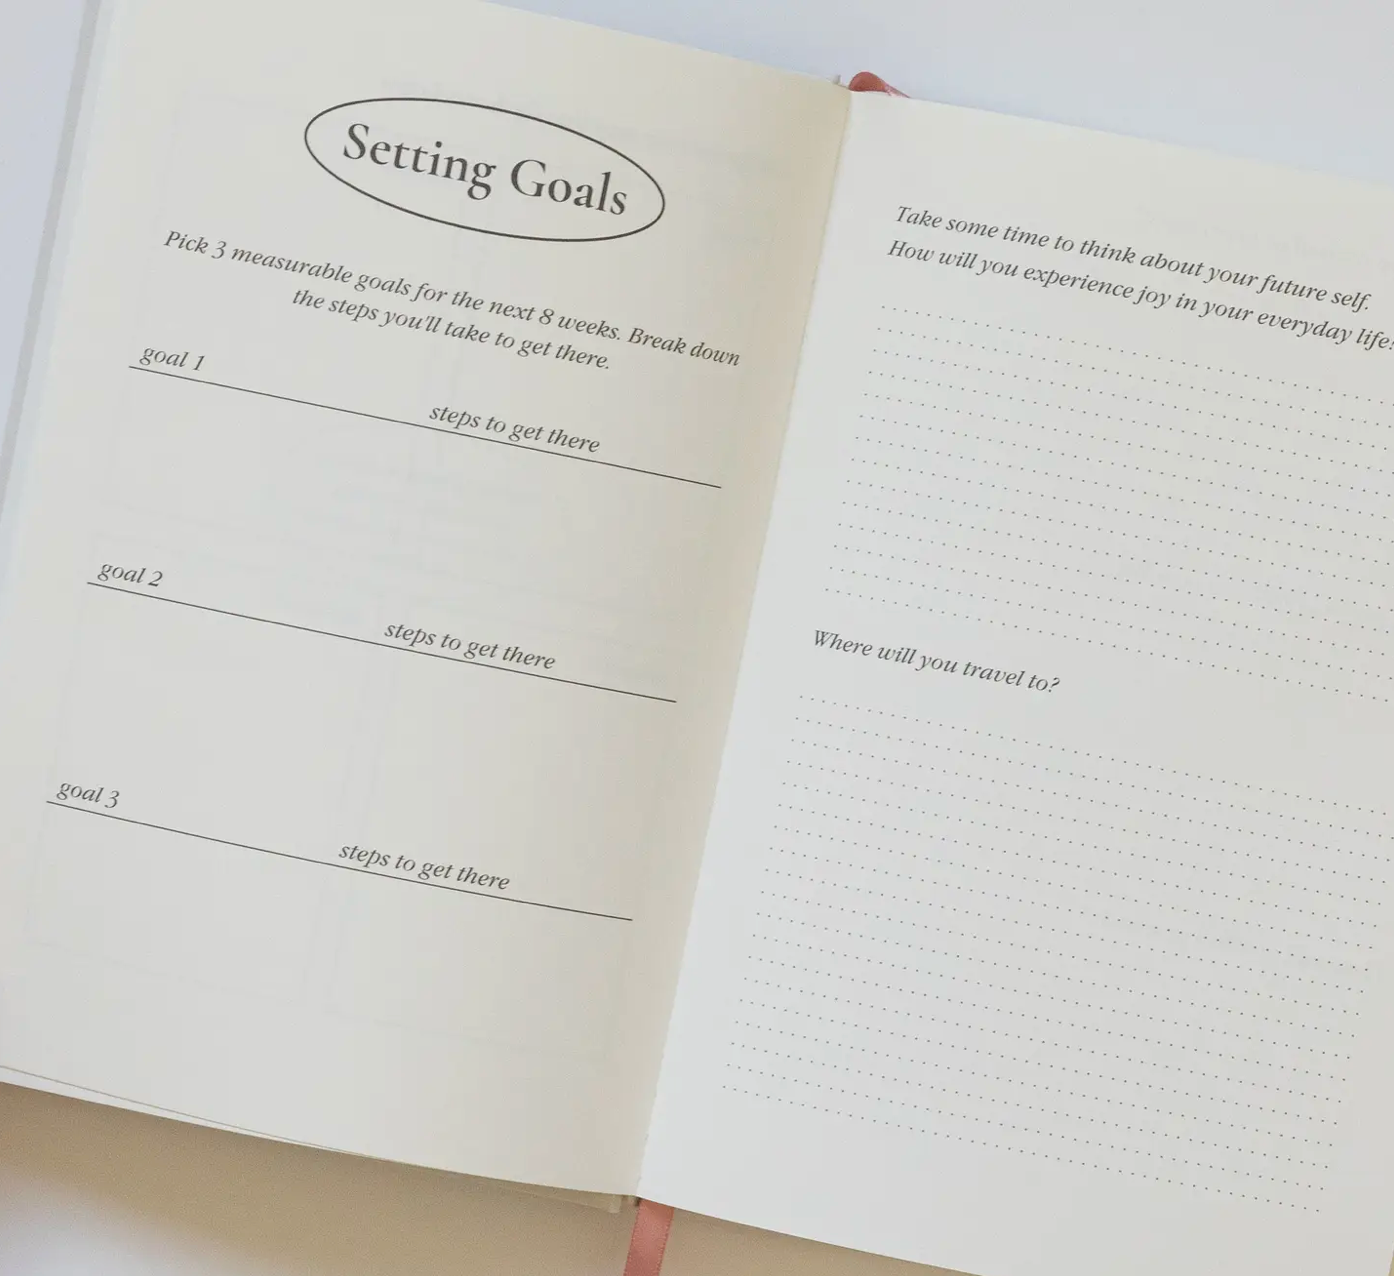 Setting Goals
Pick 3 measurable goals for the next 8 weeks. Break down
the steps you'll take to get there.
goal 1
steps to get there
goal 2
steps to get there
goal 3
steps to get there
Take some time to think about your future self.
How will you experience joy in your everyday life?
Where will you travel to?